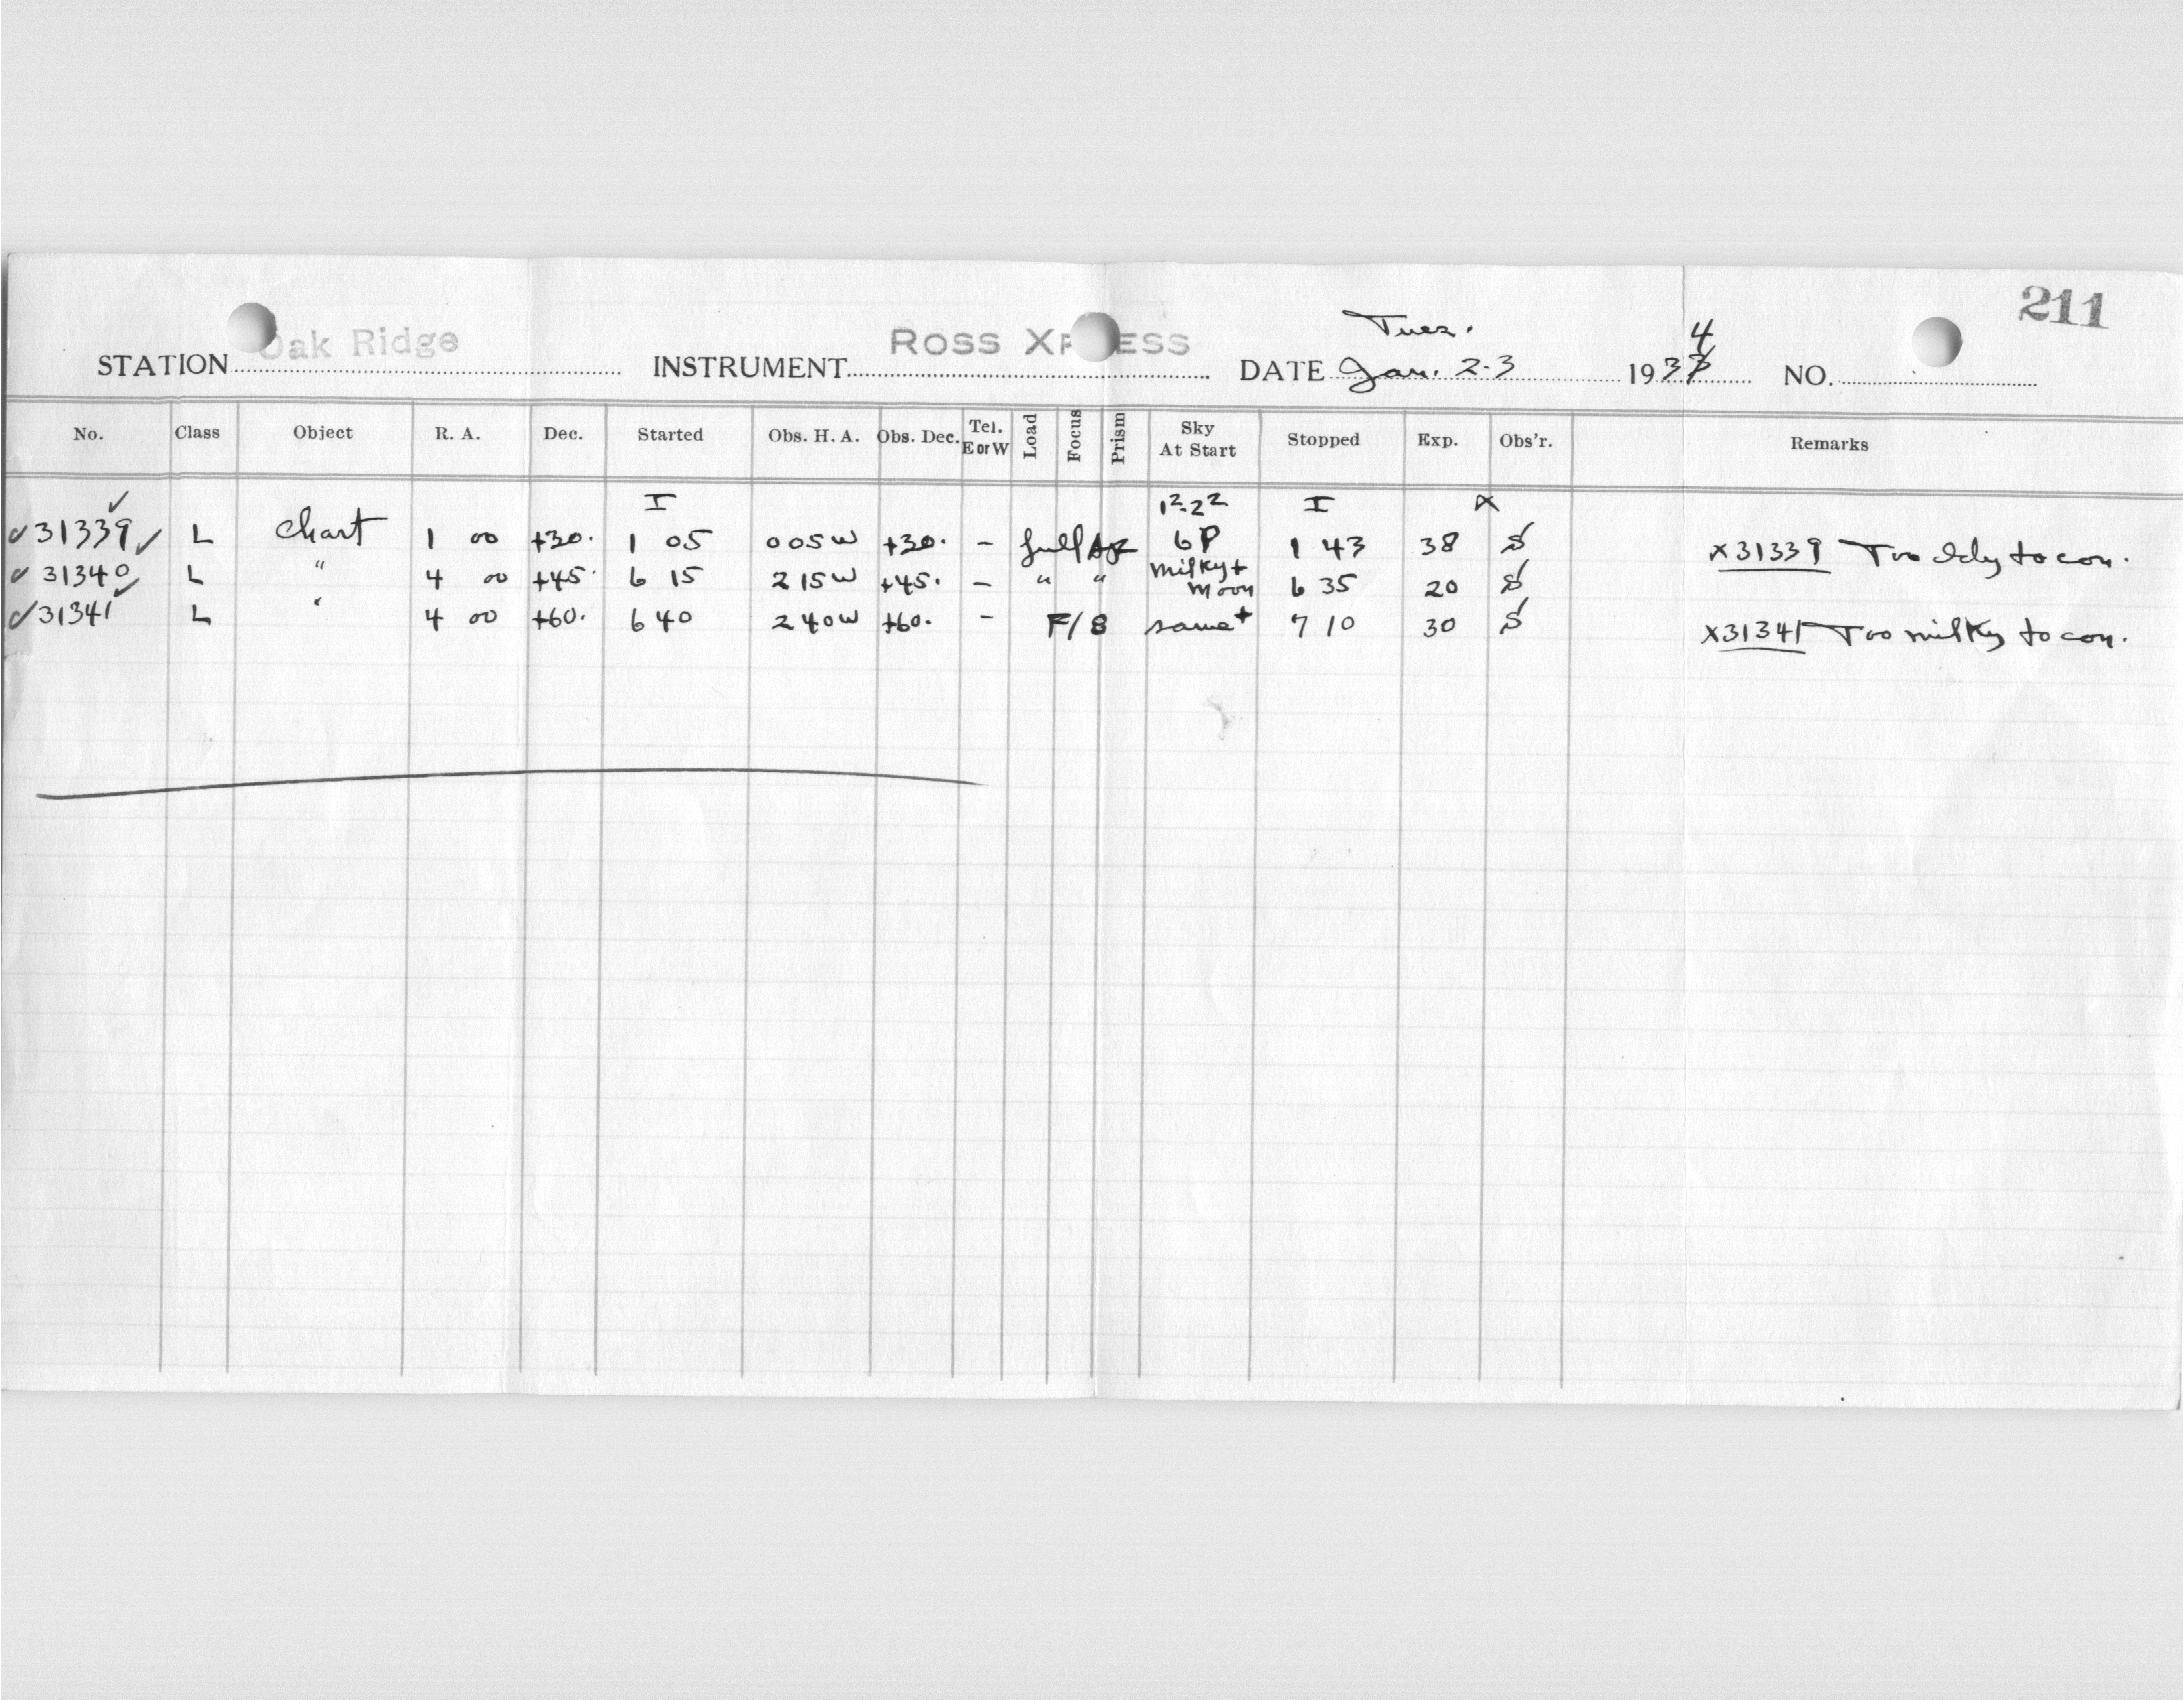 211
Tues.
STATION Oak Ridge INSTRUMENT ROSS XPRESS DATE Jan. 2-3 1934 NO.
No. Class Object R. A. Dec. Started Obs. H. A. Obs. Dec. Tel. E or W Load Focus Prism Sky At Start Stopped Exp. Obs'r. Remarks
I 12-22 I X
31339 L Chart 1 00 +30. 1 05 0 05 W +30. - full 6P 1 43 38 S X31339 Too cldy to con.
31340 L " 4 00 +45. 6 15 2 15 W +45. - " " milky + moon 6 35 20 S
31341 L " 4 00 +60. 6 40 2 40 W +60. - F/8 same + 7 10 30 S X31341 Too milky to con.